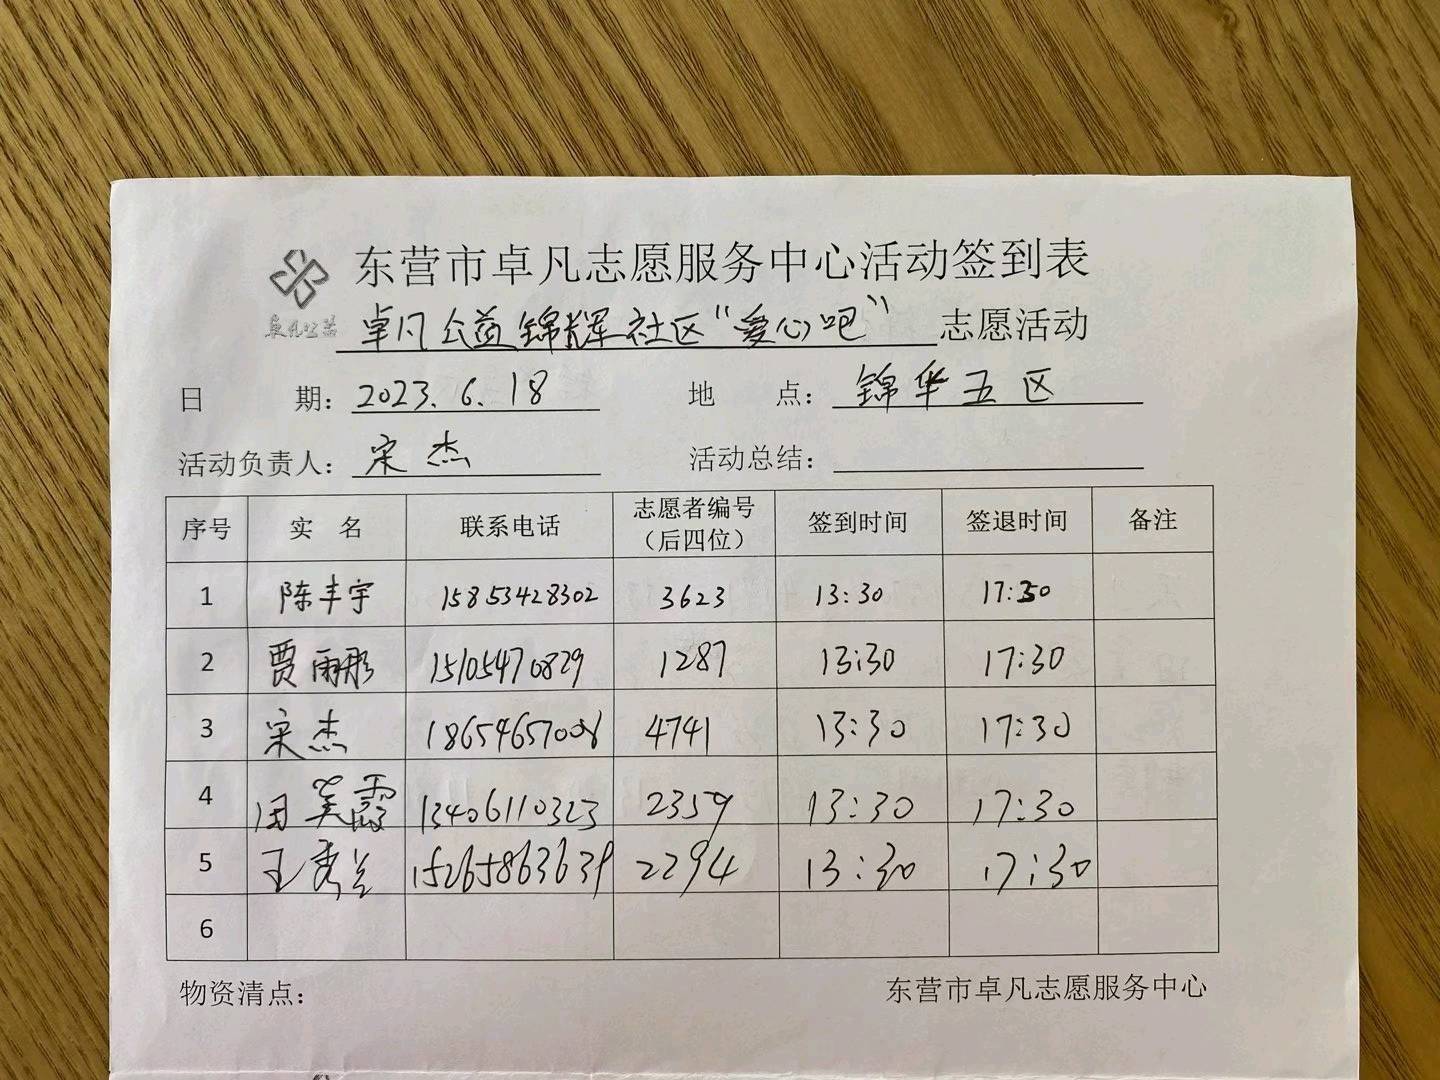 东营市卓凡志愿服务中心活动签到表
卓凡公益
卓凡公益锦辉社区“爱心吧”志愿活动
日 期：2023.6.18 地 点：锦华五区
活动负责人：宋杰 活动总结：
序号 实 名 联系电话 志愿者编号（后四位） 签到时间 签退时间 备注
1 陈丰宇 15853428302 3623 13:30 17:30
2 贾雨彤 15105470829 1287 13:30 17:30
3 宋杰 18654657008 4741 13:30 17:30
4 田美霞 13406110323 2359 13:30 17:30
5 王秀兰 15265863639 2294 13:30 17:30
6
物资清点： 东营市卓凡志愿服务中心